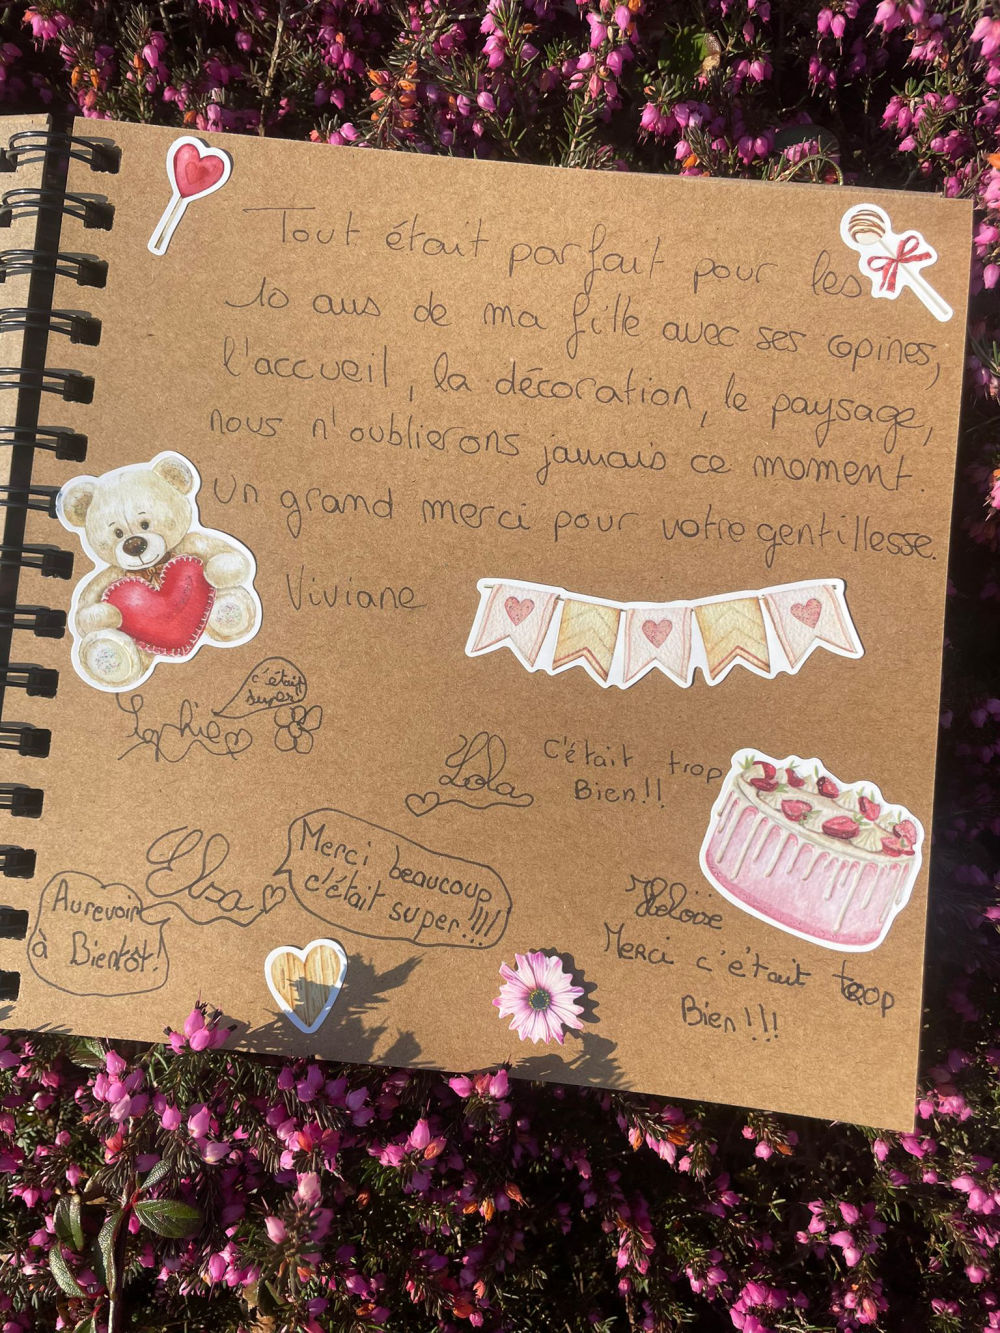 Tout était parfait pour les
10 ans de ma fille avec ses copines,
l'accueil, la décoration, le paysage,
nous n'oublierons jamais ce moment.
Un grand merci pour votre gentillesse.
Viviane
c'était
super
Sophie
Lola
C'était trop
Bien!!
Elsa
Merci beaucoup
c'était super!!!!
Au revoir
à Bientôt!
Héloïse
Merci c'était trop
Bien!!!